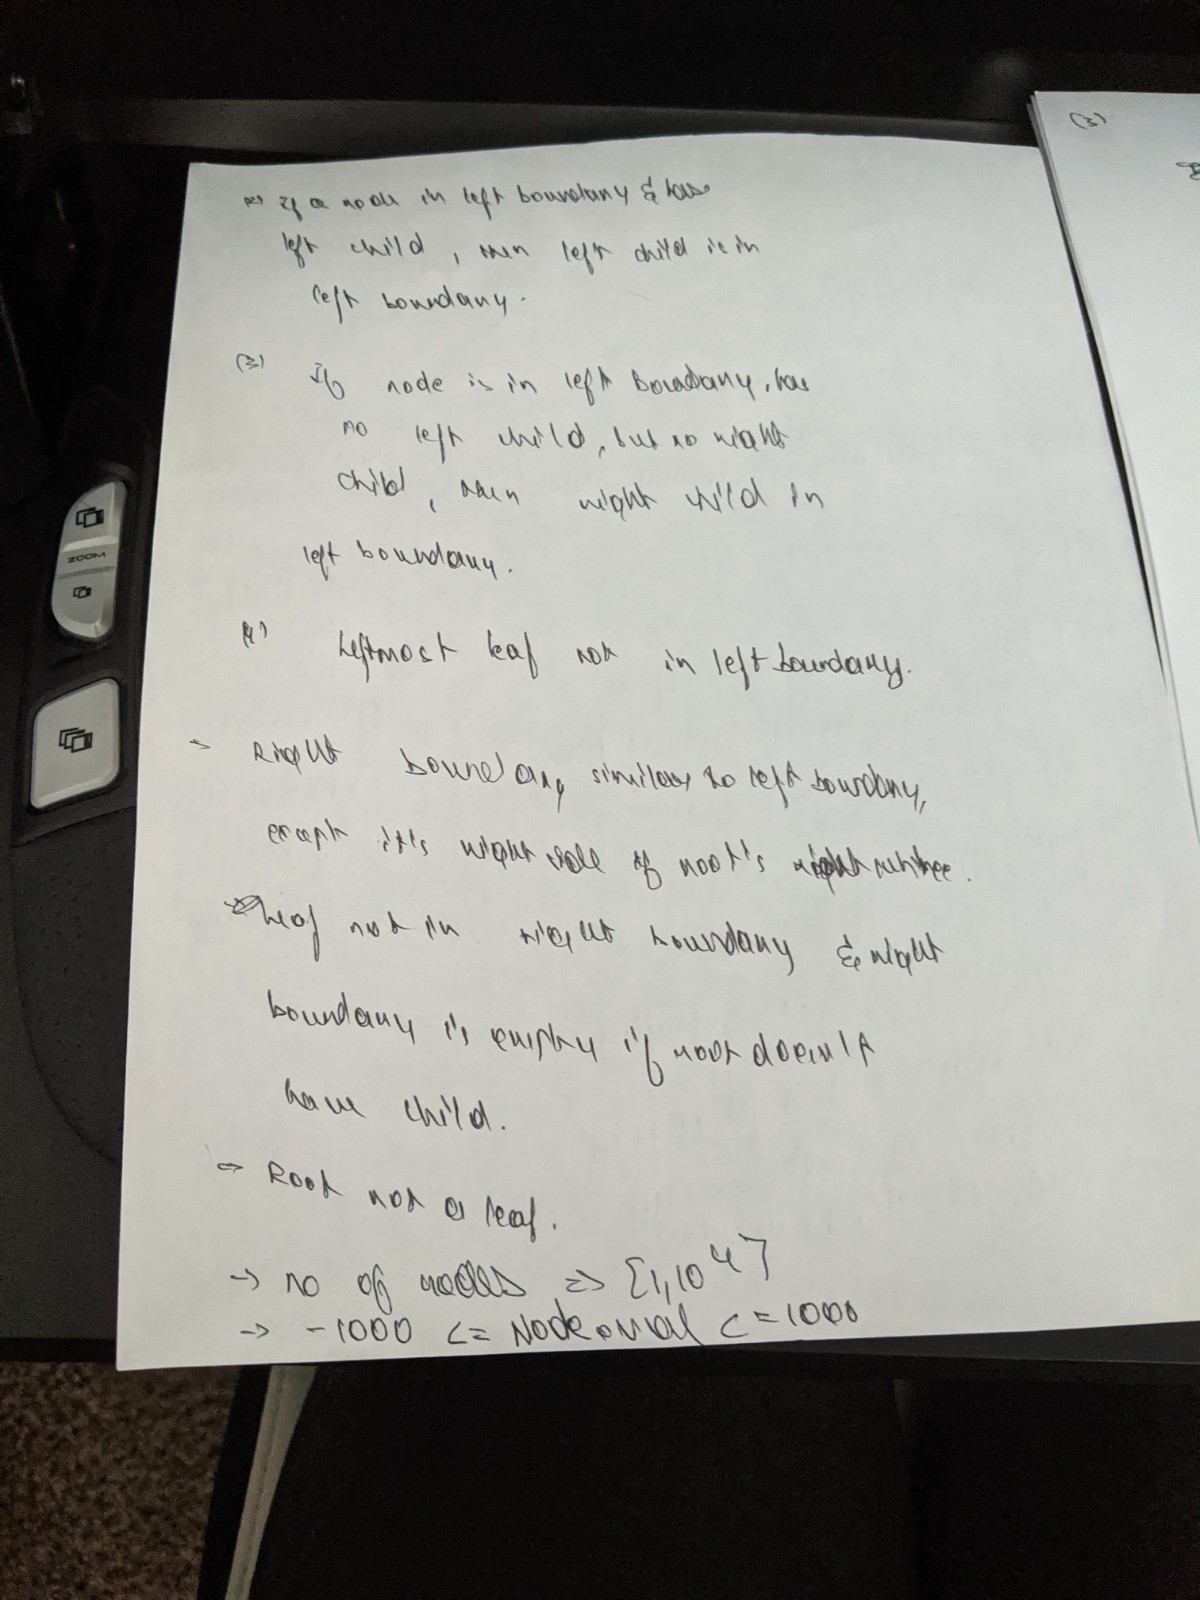 (2) If a node in left boundary & has
left child, then left child is in
left boundary.
(3) If node is in left boundary, has
no left child, but no right
child, then right child in
left boundary.
(4) Leftmost leaf not in left boundary.
→ Right boundary similar to left boundary,
except it's right side of root's right subtree.
Leaf not in right boundary & right
boundary is empty if root doesn't
have child.
→ Root not a leaf.
→ no of nodes => [1,10^4]
→ -1000 <= Node.val <= 1000
(3)
ZOOM